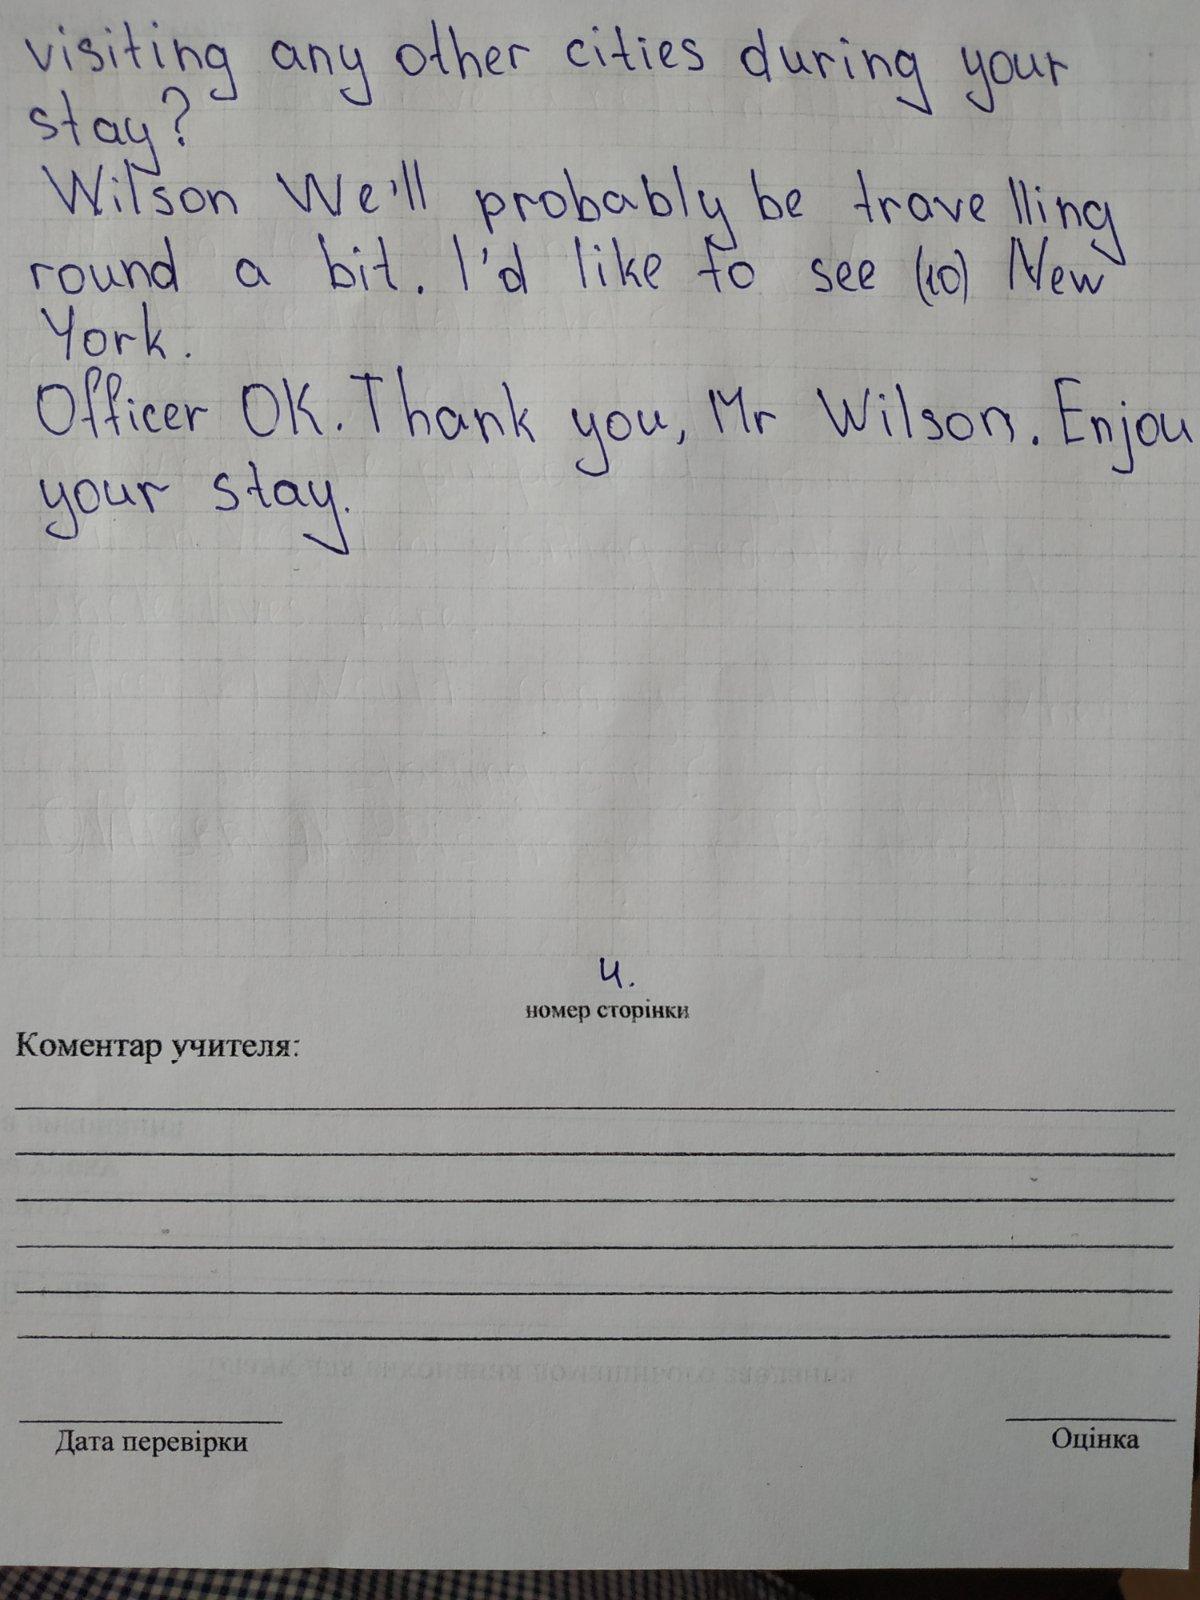 visiting any other cities during your
stay?
Wilson We'll probably be travelling
round a bit. I'd like to see (10) New
York.
Officer OK. Thank you, Mr Wilson. Enjou
your stay.
4.
номер сторінки
Коментар учителя:
Дата перевірки
Оцінка